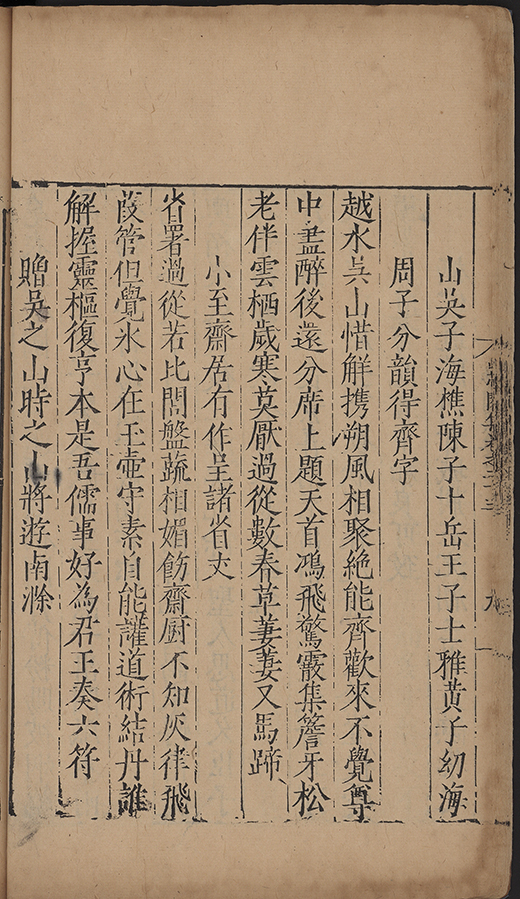 山吳子海樵陳子十岳王子士雅黄子幼海
周子分韻得齊字
越水吳山惜解携朔風相聚絶能齊歡來不覺尊
中盡醉後還分席上題天首鴻飛驚霰集簷牙松
老伴雲栖歲寒莫厭過從數春草萋萋又馬蹄
小至齋居有作呈諸省丈
省署過從若比閭盤蔬相媚飭齋厨不知灰律飛
葭管但覺氷心在玉壷守素自能讙道術結丹誰
解握靈樞復亨本是吾儒事好為君王奏六符
贈吳之山時之山將遊南滁